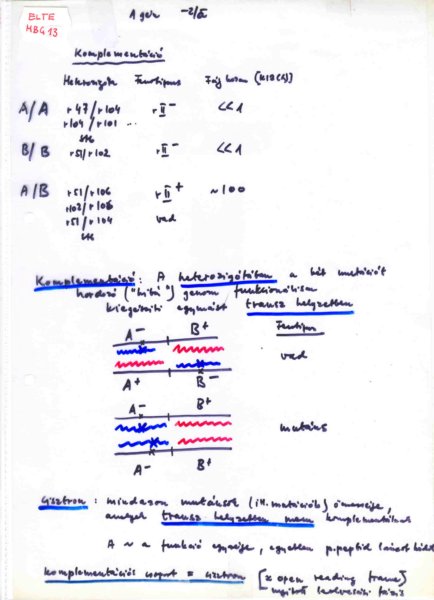 ELTE
MBG 13
A gén -2/a
Komplementáció
Heterozigóta Fenotípus Fág hozam [K12(λ)]
A/A r47/r104 rII⁻ <<1
r104/r101 ...
stb
B/B r51/r102 rII⁻ <<1
A/B r51/r106 rII⁺ ~100
r102/r106
r51/r104 vad
stb
Komplementáció: A heterozigótában a két mutációt
hordozó ("hibás") genom funkcionálisan
kiegészíti egymást transz helyzetben
A⁻ B⁺ Fenotípus
vad
A⁺ B⁻
A⁻ B⁺
mutáns
A⁻ B⁺
Cisztron: mindazon mutánsok (ill. mutációk) összessége,
amelyek transz helyzetben nem komplementálnak
A ~ a funkció egysége, egyetlen p.peptid láncot
Komplementációs csoport = cisztron [≈ open reading frame]
nyitott leolvasási fázis